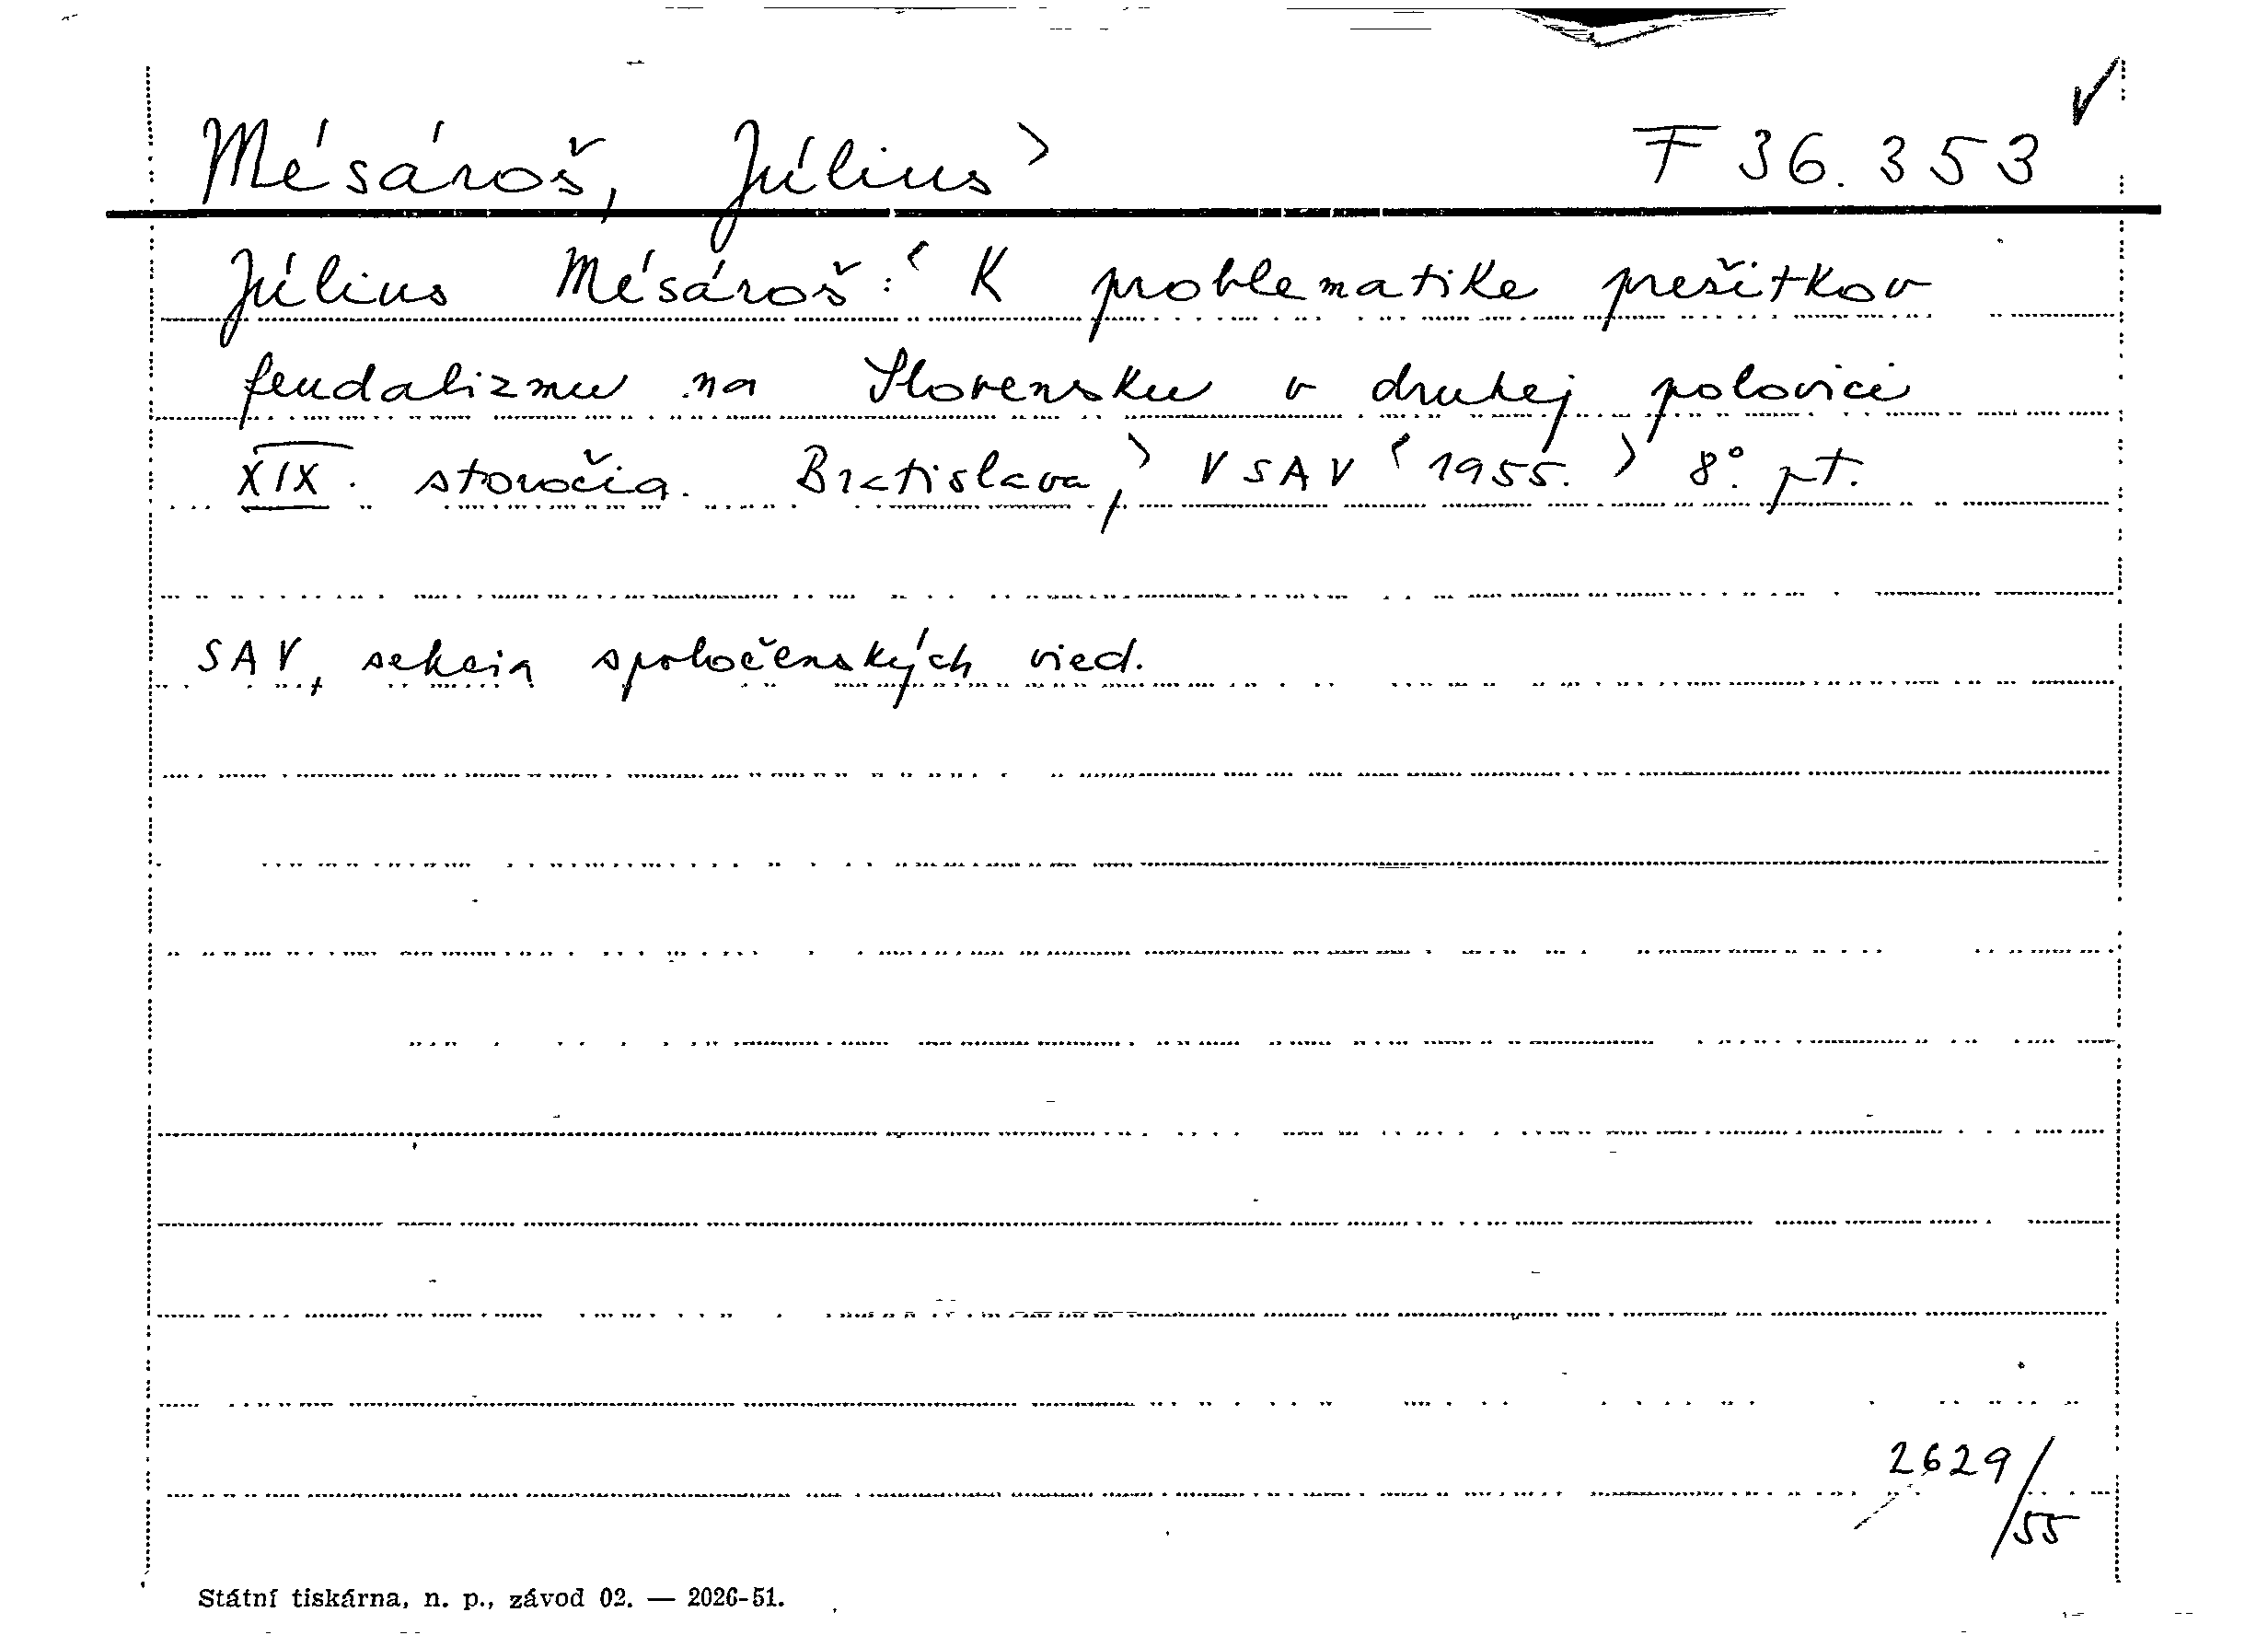 Mésároš, Július > F 36.353 ✓
Július Mésároš: < K problematike prežitkov
feudalizmu na Slovensku v druhej polovici
XIX. storočia. Bratislava, > VSAV < 1955. > 8°. pt.
SAV, sekcia spoločenských vied.
2629/55
Státní tiskárna, n. p., závod 02. — 2026-51.